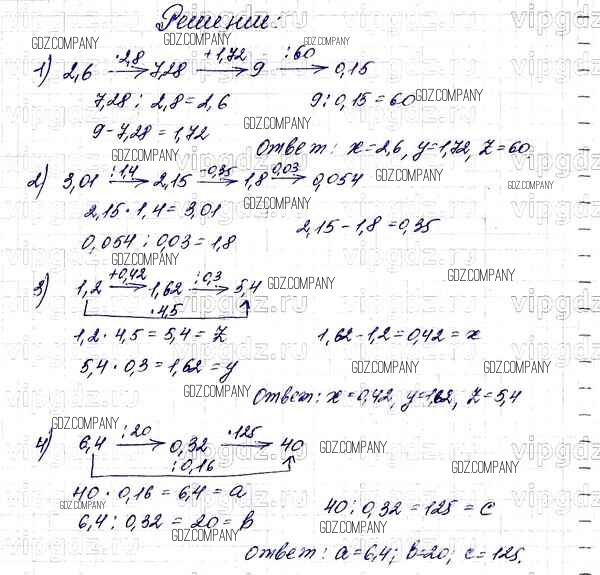 Решение:
1) 2,6 —·2,8→ 7,28 —+1,72→ 9 —:60→ 0,15
7,28 : 2,8 = 2,6
9 : 0,15 = 60
9 - 7,28 = 1,72
Ответ: x = 2,6, y = 1,72, z = 60
2) 3,01 —:1,4→ 2,15 —-0,35→ 1,8 —·0,03→ 0,054
2,15 · 1,4 = 3,01
2,15 - 1,8 = 0,35
0,054 : 0,03 = 1,8
3) 1,2 —+0,42→ 1,62 —:0,3→ 5,4
·4,5
1,2 · 4,5 = 5,4 = z
1,62 - 1,2 = 0,42 = x
5,4 · 0,3 = 1,62 = y
Ответ: x = 0,42, y = 1,62, z = 5,4
4) 6,4 —:20→ 0,32 —·125→ 40
:0,16
40 · 0,16 = 6,4 = a
40 : 0,32 = 125 = c
6,4 : 0,32 = 20 = b
Ответ: a = 6,4; b = 20; c = 125.
GDZ.COMPANY
vipgdz.ru